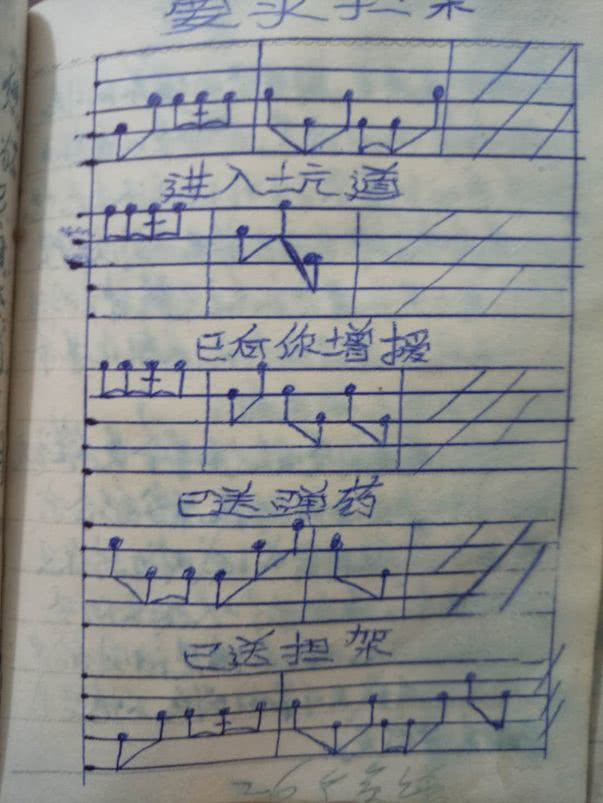 要求担架
进入坑道
已向你增援
已送弹药
已送担架